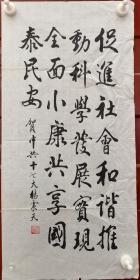 促進社會和諧推
動科學發展實現
全面小康共享國
泰民安
賀中共十七大楊雲天